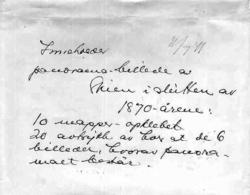 Inneholder 4/7 41
panorama-billede av
Skien i slutten av
1870-årene:
10 mapper-opklebet
20 avtrykk av hver at de 6
billeder, hvorav panora-
maet består.